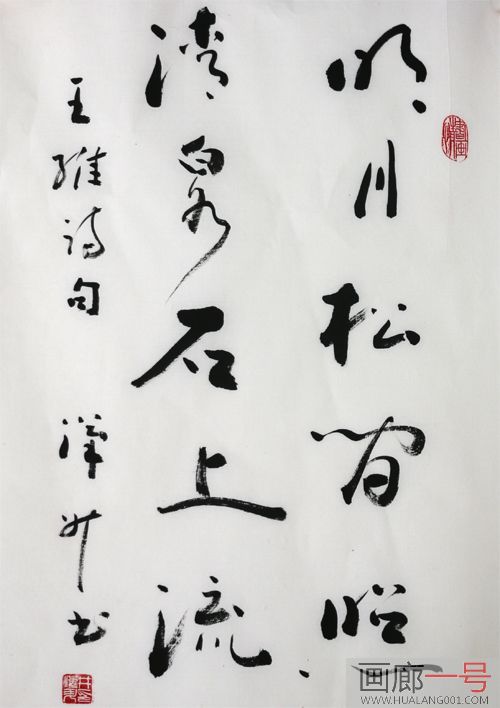 明月松间照
清泉石上流
王维诗句 书
画廊一号
WWW.HUALANG001.COM